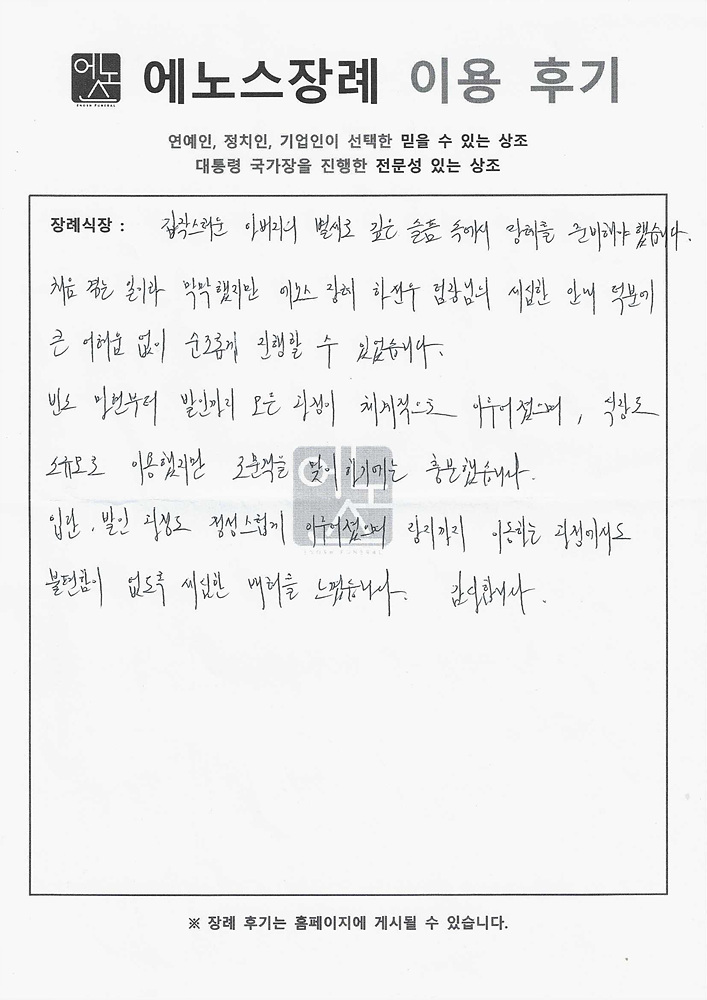 에노스
ENOSH FUNERAL
에노스장례 이용 후기
연예인, 정치인, 기업인이 선택한 믿을 수 있는 상조
대통령 국가장을 진행한 전문성 있는 상조
장례식장 : 갑작스러운 아버지의 별세로 깊은 슬픔 속에서 장례를 준비해야 했습니다.
처음 겪는 일이라 막막했지만 에노스 장례 하진우 팀장님의 세심한 안내 덕분에
큰 어려움 없이 순조롭게 진행할 수 있었습니다.
빈소 마련부터 발인까지 모든 과정이 체계적으로 이루어졌으며, 식장도
소규모로 이용했지만 조문객을 맞이하기에는 충분했습니다.
에노스
ENOSH FUNERAL
입관, 발인 과정도 정성스럽게 이루어졌으며 장지까지 이동하는 과정에서도
불편함이 없도록 세심한 배려를 느꼈습니다. 감사합니다.
※ 장례 후기는 홈페이지에 게시될 수 있습니다.